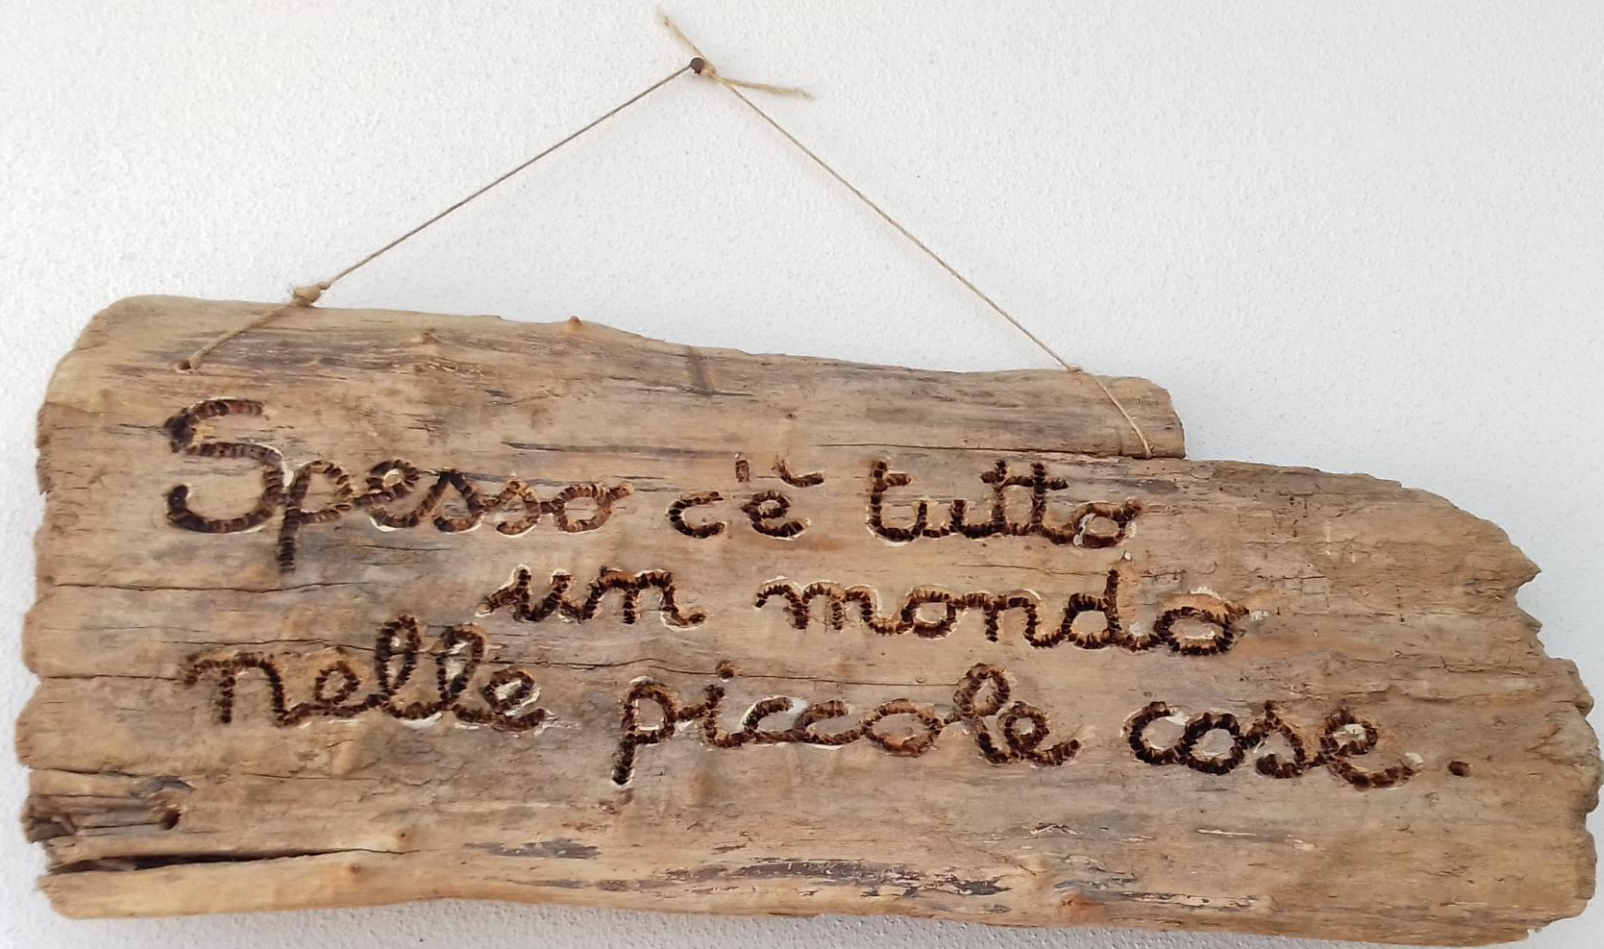 Spesso c'è tutto
un mondo
nelle piccole cose.